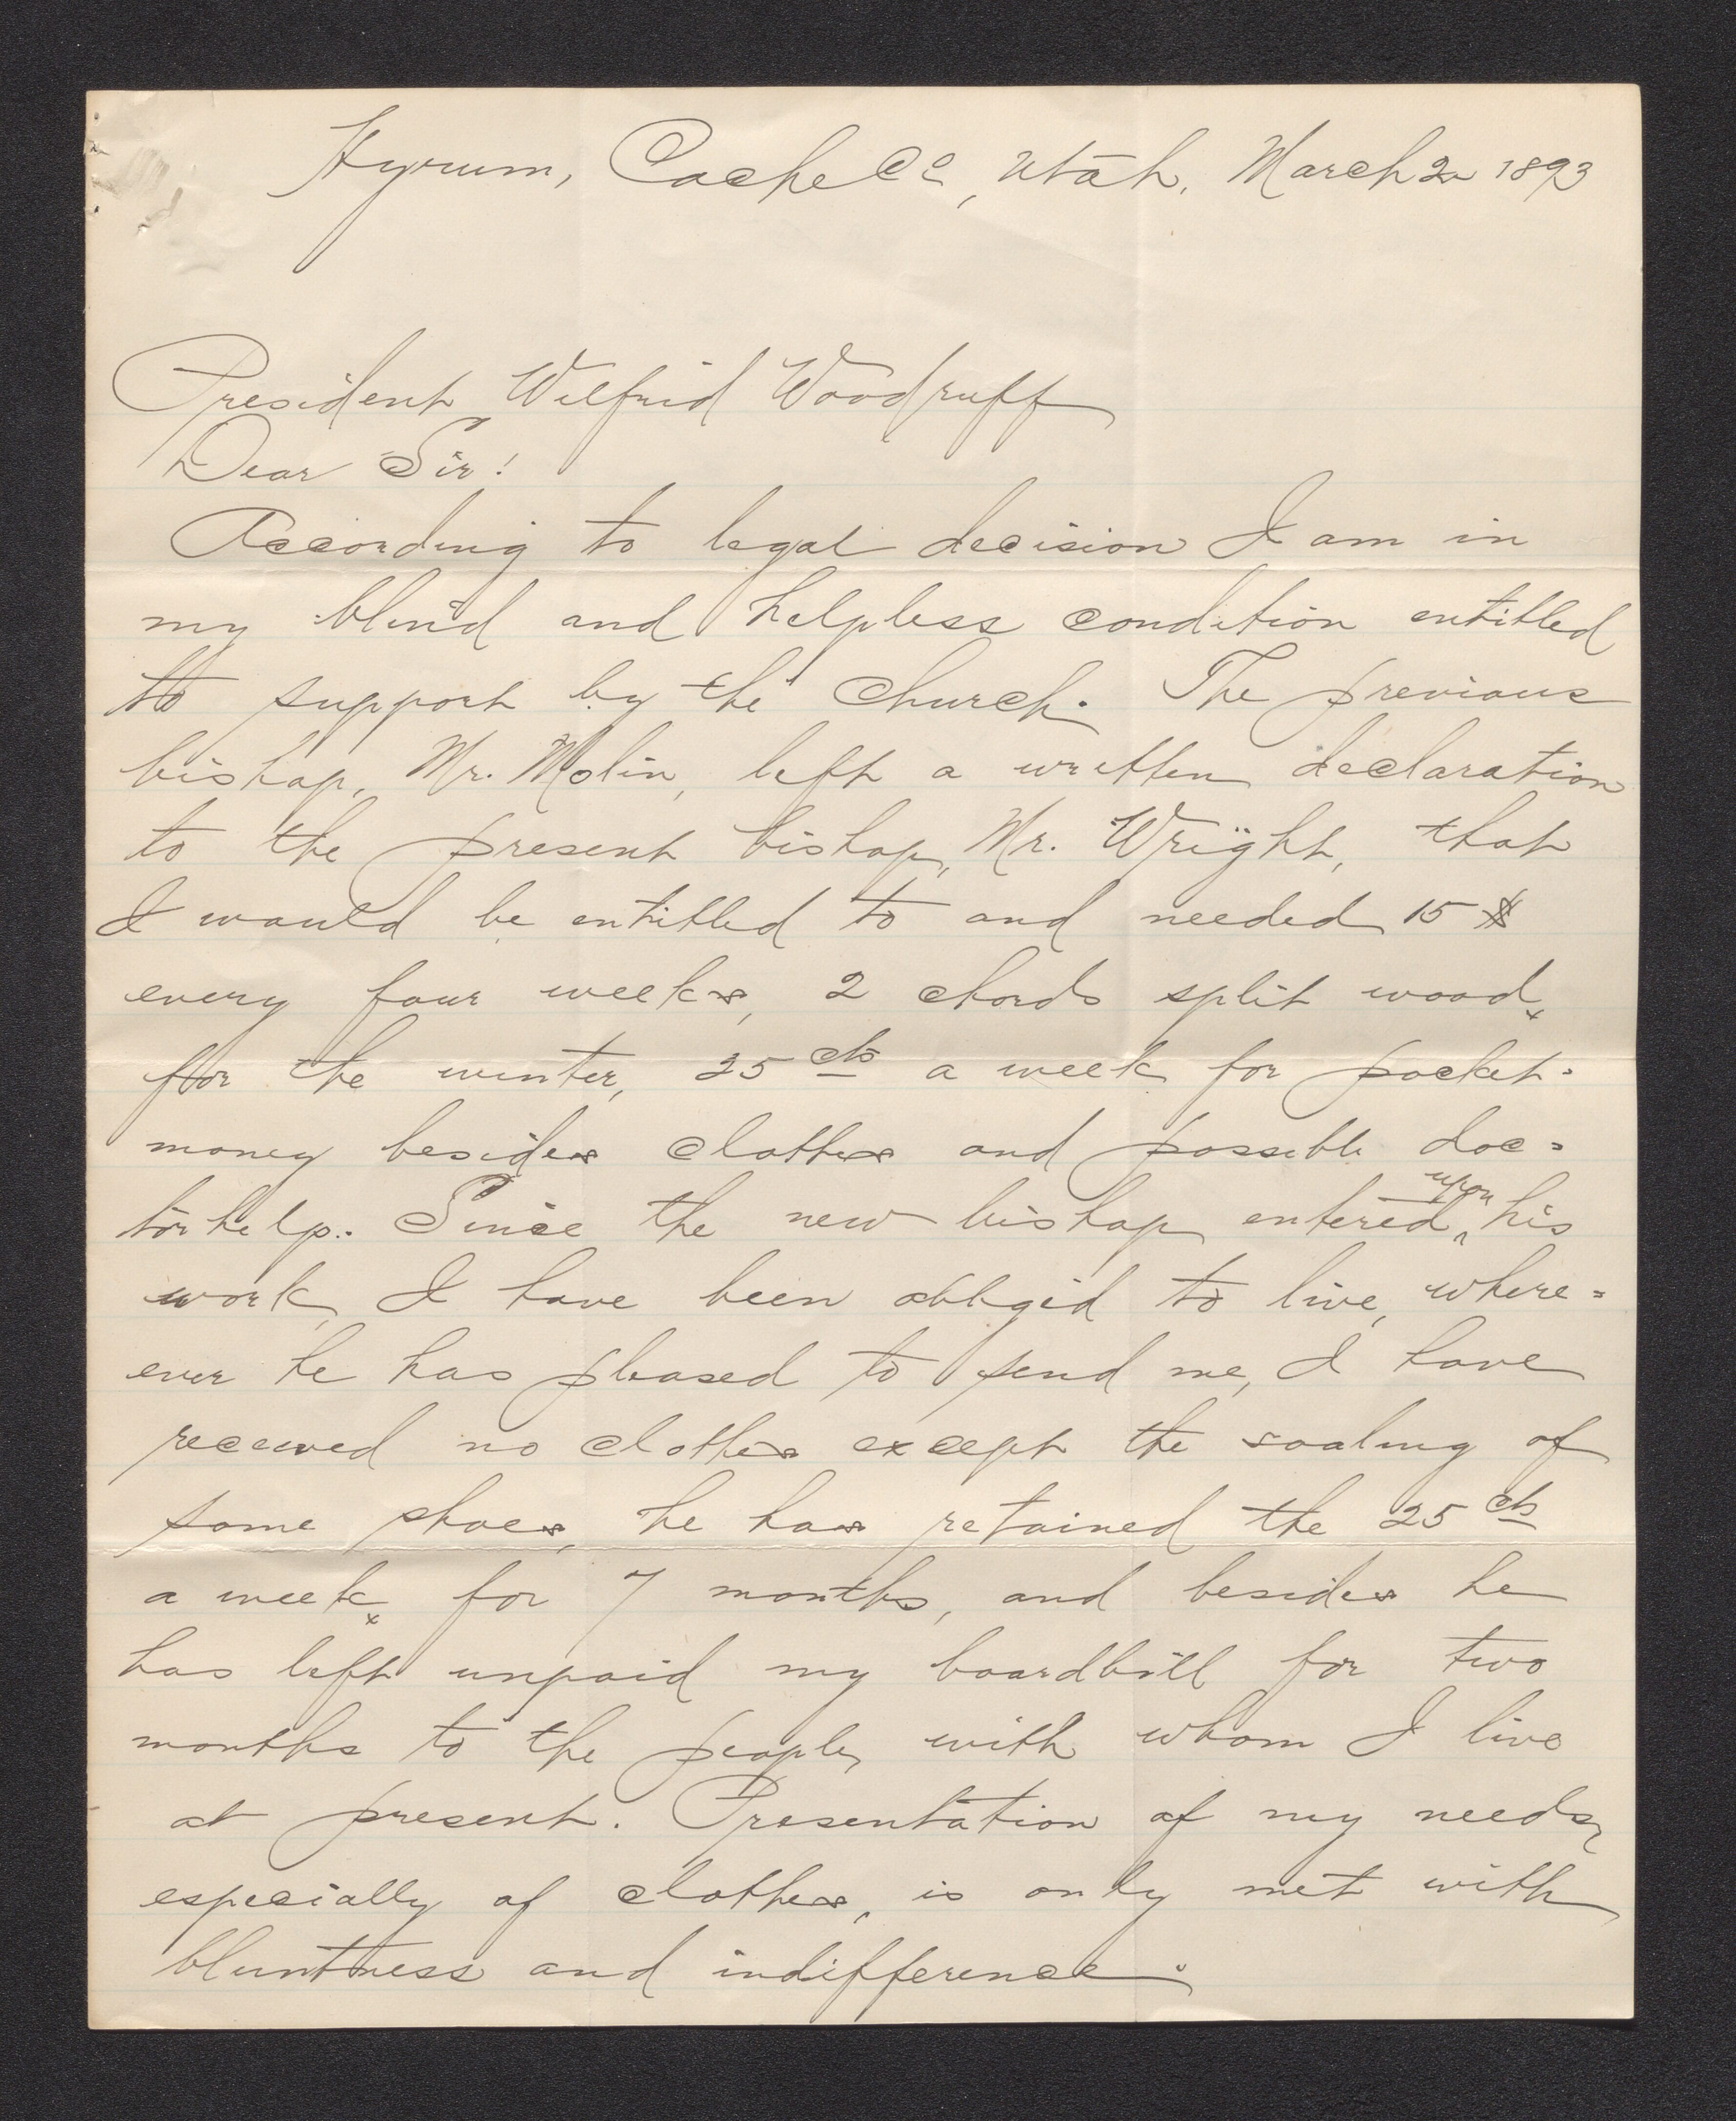 Hyrum, Cache Co, Utah, March 2 1893
President Wilfrid Woodruff
Dear Sir!
According to legal decision I am in
my blind and helpless condition entitled
to support by the church. The previous
bishop, Mr. Molin, left a written declaration
to the present bishop, Mr. Wright, that
I would be entitled to and needed 15 $
every four weeks, 2 chords split wood,
for the winter, 25 cts a week for pocket-
money besides clothes and possible doc=
torhelp. Since the new bishop entered upon his
work, I have been obliged to live, where=
ever he has pleased to send me, I have
received no clothes except the soaling of
some shoes, he has retained the 25 cts
a week, for 7 months, and besides he
has left unpaid my boardbill for two
months to the people, with whom I live
at present. Presentation of my needs,
especially of clothes, is only met with
bluntness and indifference.